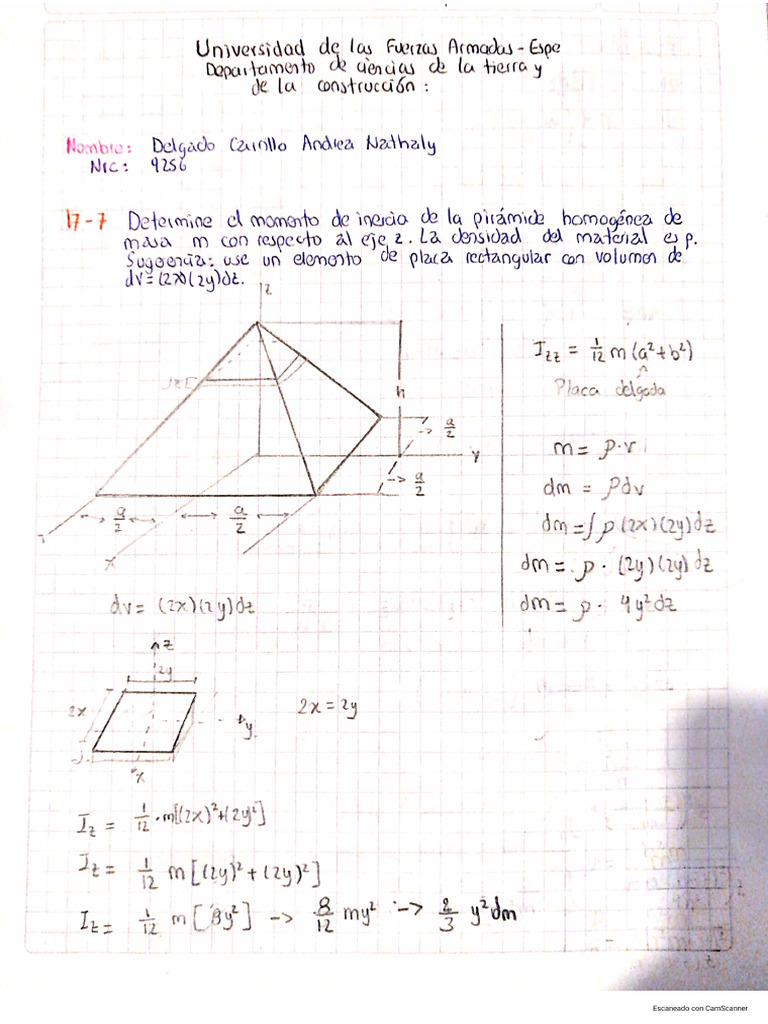 Universidad de las Fuerzas Armadas - Espe
Departamento de ciencias de la tierra y
de la construcción :
Nombre: Delgado Carrillo Andrea Nathaly
Nrc: 9256
17-7 Determine el momento de inercia de la pirámide homogénea de
masa m con respecto al eje z. La densidad del material es ρ.
Sugerencia: use un elemento de placa rectangular con volumen de
dv=(2x)(2y)dz.
z
h
a/2
y
a/2
a/2
a/2
x
Izz = 1/12 m(a²+b²)
Placa delgada
m = ρ·v
dm = ρdv
dm = ∫ρ(2x)(2y)dz
dm = ρ · (2y)(2y)dz
dm = ρ · 4y²dz
dv = (2x)(2y)dz
z
2y
2x
y
x
2x = 2y
Iz = 1/12 · m[(2x)²+(2y²]
Iz = 1/12 m[(2y)²+(2y)²]
Iz = 1/12 m[8y²] -> 8/12 my² -> 2/3 y²dm
Escaneado con CamScanner